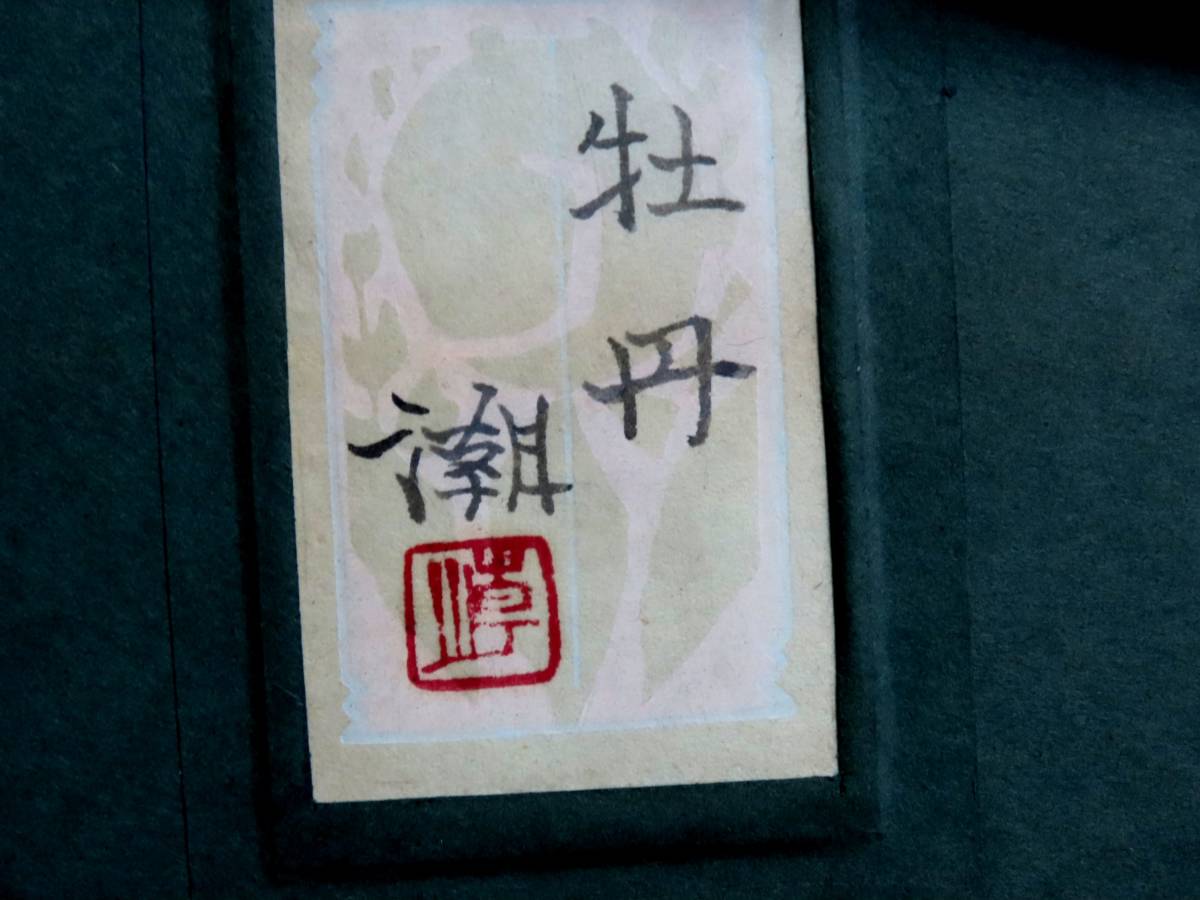 牡丹
潮